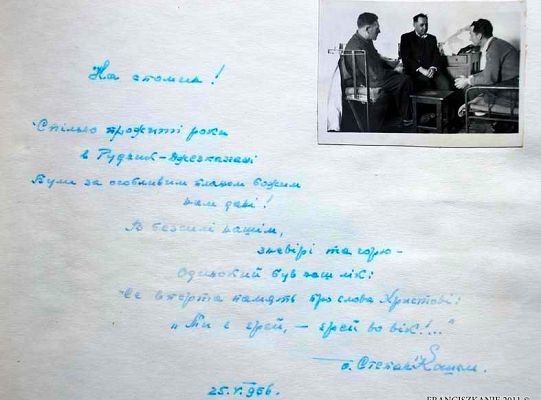 На спомин!
Спільно прожиті роки
в Рудник-Джезказгані
Були за особливим планом божим
нам дані!
В безсилі нашім,
зневірі та горю-
Одинокий був наш лік:
Це вперта память про слова Христові:
"Ти є єрей, - єрей во вік!..."
о. Стефан
25.V.1956.
FRANCISZKANIE 2011 ©